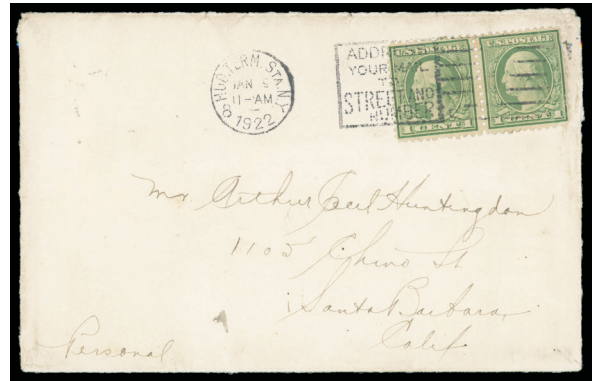 HUD. TERM. STA. N.Y.
JAN
11-AM
1922
8
ADDRESS
YOUR MAIL
TO
STREET AND
NUMBER
U.S. POSTAGE
1 CENT 1
U.S. POSTAGE
1 CENT 1
Mr Arthur Cecil Huntingdon
1105 Chino St
Santa Barbara,
Calif.
Personal